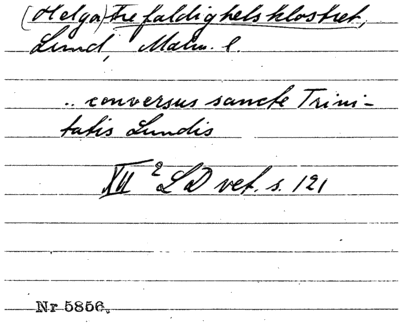 (Helga) Trefaldighetsklostret,
Lund, Malm. l.
.. conversus sancte Trini-
tatis Lundis
XII 2 LD vet. s. 121
Nr 5856.